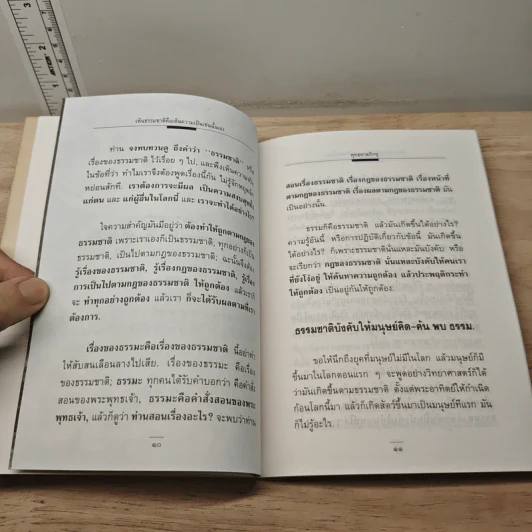 เห็นธรรมชาติคือเห็นความเป็นเช่นนั้นเอง
ท่าน จงทบทวนดู ถึงคำว่า "ธรรมชาติ" หรือ
เรื่องของธรรมชาติ ไว้เรื่อย ๆ ไป. และพึงเห็นความจริง
ในข้อที่ว่า ทำไมเราจึงต้องพูดเรื่องนี้กัน ไม่รู้จักหยุดจัก
หย่อนสักที. เราต้องการจะมีผล เป็นความสงบสุขทั้ง
แก่ตน และ แก่ผู้อื่นในโลกนี้ และ เราจะทำได้อย่างไร?
ใจความสำคัญมันมีอยู่ว่า ต้องทำให้ถูกตามกฎของ
ธรรมชาติ เพราะเราเองก็เป็นธรรมชาติ, ทุกอย่างก็เป็น
ธรรมชาติ, เป็นไปตามกฎของธรรมชาติ; ฉะนั้นจึงต้อง
รู้เรื่องของธรรมชาติ, รู้เรื่องกฎของธรรมชาติ, รู้เรื่อง
การเป็นไปตามกฎของธรรมชาติ ให้ถูกต้อง แล้วเราก็
จะ ทำทุกอย่างถูกต้อง แล้วเรา ก็จะได้รับผลตามที่เรา
ต้องการ.
เรื่องของธรรมะคือเรื่องของธรรมชาติ นี้อย่าทำ
ให้สับสนเลือนลางไปเสีย. เรื่องของธรรมะ คือเรื่อง
ของธรรมชาติ; ธรรมะ ทุกคนได้รับคำบอกว่า คือคำสั่ง
สอนของพระพุทธเจ้า, ธรรมะคือคำสั่งสอนของพระ
พุทธเจ้า, แล้วก็ดูว่า ท่านสอนเรื่องอะไร? จะพบว่าท่าน
๑๐
พุทธทาสภิกขุ
สอนเรื่องธรรมชาติ เรื่องกฎของธรรมชาติ เรื่องหน้าที่
ตามกฎของธรรมชาติ เรื่องผลตามกฎของธรรมชาติ มัน
เป็นอย่างนั้น.
ธรรมก็คือธรรมชาติ แล้วมันเกิดขึ้นได้อย่างไร?
ความรู้อันนี้ หรือการปฏิบัติเกี่ยวกับข้อนี้ มันเกิดขึ้น
ได้อย่างไร? ก็เพราะธรรมชาตินั่นแหละมันบังคับ หรือ
จะเรียกว่า กฎของธรรมชาติ นั่นแหละบังคับให้คนเรา
ที่ยังโง่อยู่ ให้ค้นหาความถูกต้อง แล้วประพฤติกระทำ
ให้ถูกต้อง เป็นอยู่กันให้ถูกต้อง.
ธรรมชาติบังคับให้มนุษย์คิด-ค้น พบ ธรรม.
ขอให้นึกถึงยุคที่มนุษย์ไม่มีในโลก แล้วมนุษย์ก็มี
ขึ้นมาในโลกตอนแรก ๆ จะพูดอย่างวิทยาศาสตร์ก็ได้
ว่ามันเกิดขึ้นตามธรรมชาติ ตั้งแต่พระอาทิตย์ให้กำเนิด
ก้อนโลกนี้มา แล้วก็เกิดสัตว์ขึ้นมาเป็นมนุษย์ทีแรก มัน
ก็ไม่รู้อะไร.
๑๑